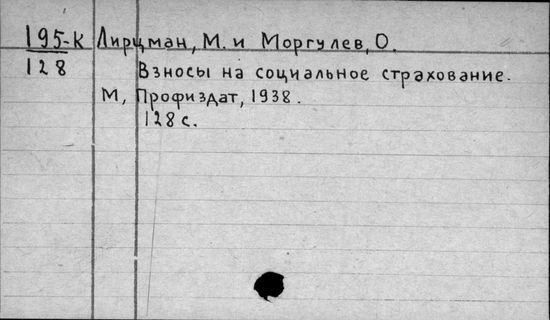 195-К Лирцман, М. и Моргулев, О.
128 Взносы на социальное страхование.
М, Профиздат, 1938.
128 с.